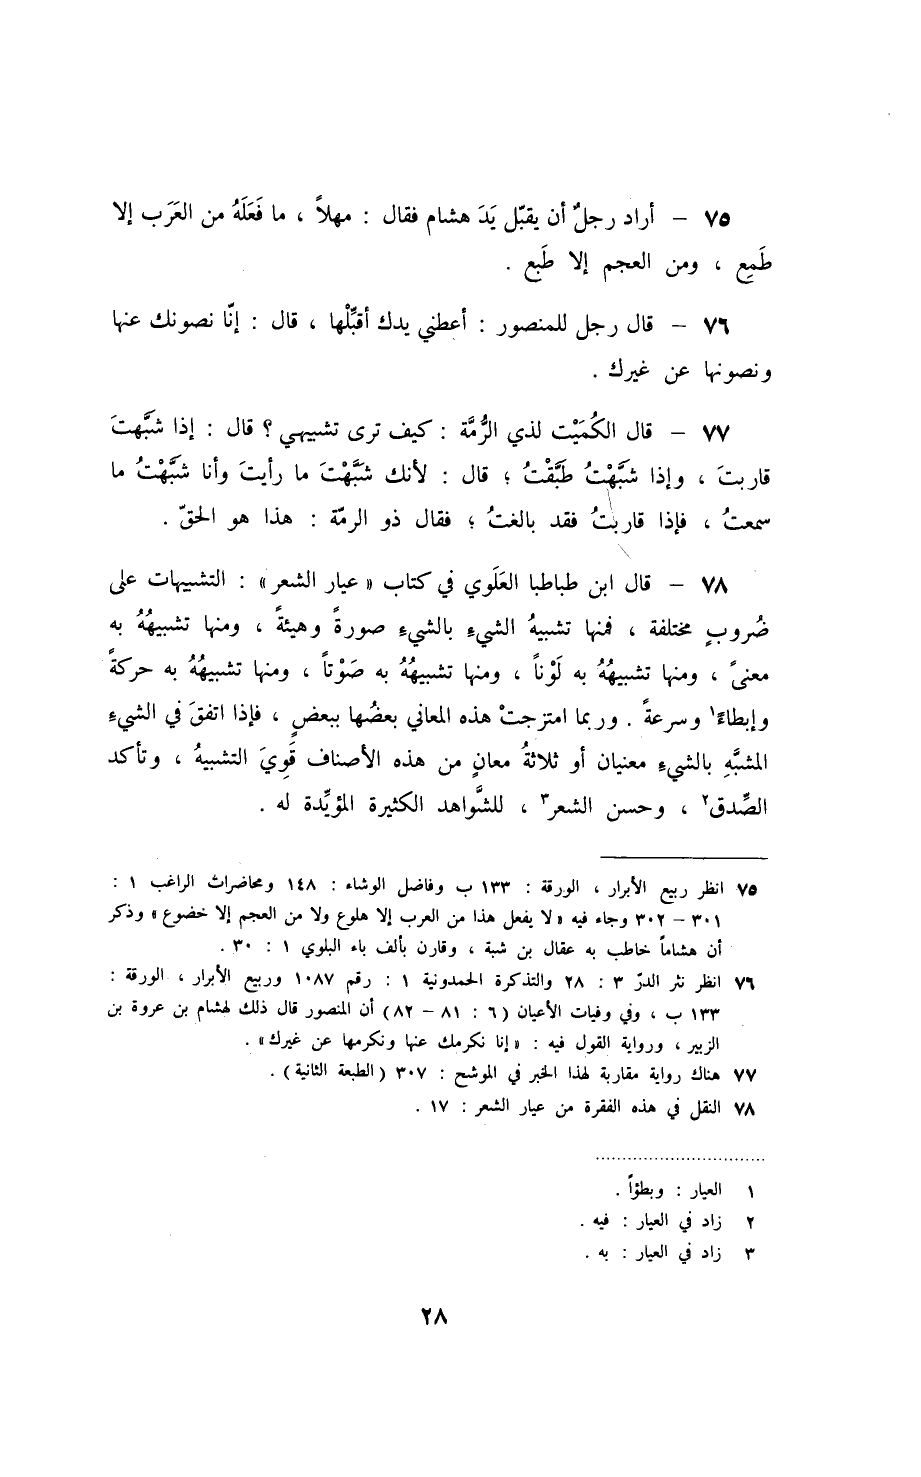 ٧٥ – أراد رجلٌ أن يقبّل يَدَ هشام فقال : مهلاً ، ما فَعَلَهُ من العَرَب إلا
طَمِع ، ومن العجم إلا طَبِع .
٧٦ – قال رجل للمنصور : أعطني يدك أقبِّلْها ، قال : إنّا نصونك عنها
ونصونها عن غيرك .
٧٧ – قال الكُمَيْت لذي الرُّمَّة : كيف ترى تشبيهي ؟ قال : إذا شبَّهتَ
قاربتَ ، وإذا شبَّهْتُ طَبَّقْتُ ؛ قال : لأنك شبَّهْتَ ما رأيتَ وأنا شبَّهْتُ ما
سمعتُ ، فإذا قاربتُ فقد بالغتُ ؛ فقال ذو الرمّة : هذا هو الحقّ .
٧٨ – قال ابن طباطبا العَلَوي في كتاب « عيار الشعر » : التشبيهات على
ضُروبٍ مختلفة ، فمنها تشبيهُ الشيءِ بالشيءِ صورةً وهيئةً ، ومنها تشبيهُهُ به
معنىً ، ومنها تشبيهُهُ به لَوْناً ، ومنها تشبيهُهُ به صَوْتاً ، ومنها تشبيهُهُ به حركةً
وإبطاءً١ وسرعةً . وربما امتزجتْ هذه المعاني بعضُها ببعضٍ ، فإذا اتفقَ في الشيءِ
المشبَّهِ بالشيءِ معنيان أو ثلاثةُ معانٍ من هذه الأصناف قَوِيَ التشبيهُ ، وتأكد
الصِّدق٢ ، وحسن الشعر٣ ، للشَّواهد الكثيرة المؤيِّدة له .
٧٥ انظر ربيع الأبرار ، الورقة : ١٣٣ ب وفاضل الوشاء : ١٤٨ ومحاضرات الراغب ١ :
٣٠١ – ٣٠٢ وجاء فيه « لا يفعل هذا من العرب إلا هلوع ولا من العجم إلا خضوع » وذكر
أن هشاماً خاطب به عقال بن شبة ، وقارن بألف باء البلوي ١ : ٣٠ .
٧٦ انظر نثر الدرّ ٣ : ٢٨ والتذكرة الحمدونية ١ : رقم ١٠٨٧ وربيع الأبرار ، الورقة :
١٣٣ ب ، وفي وفيات الأعيان (٦ : ٨١ – ٨٢) أن المنصور قال ذلك لهشام بن عروة بن
الزبير ، ورواية القول فيه : « إنا نكرمك عنها ونكرمها عن غيرك » .
٧٧ هناك رواية مقاربة لهذا الخبر في الموشح : ٣٠٧ (الطبعة الثانية) .
٧٨ النقل في هذه الفقرة من عيار الشعر : ١٧ .
١ العيار : وبطؤاً .
٢ زاد في العيار : فيه .
٣ زاد في العيار : به .
٢٨